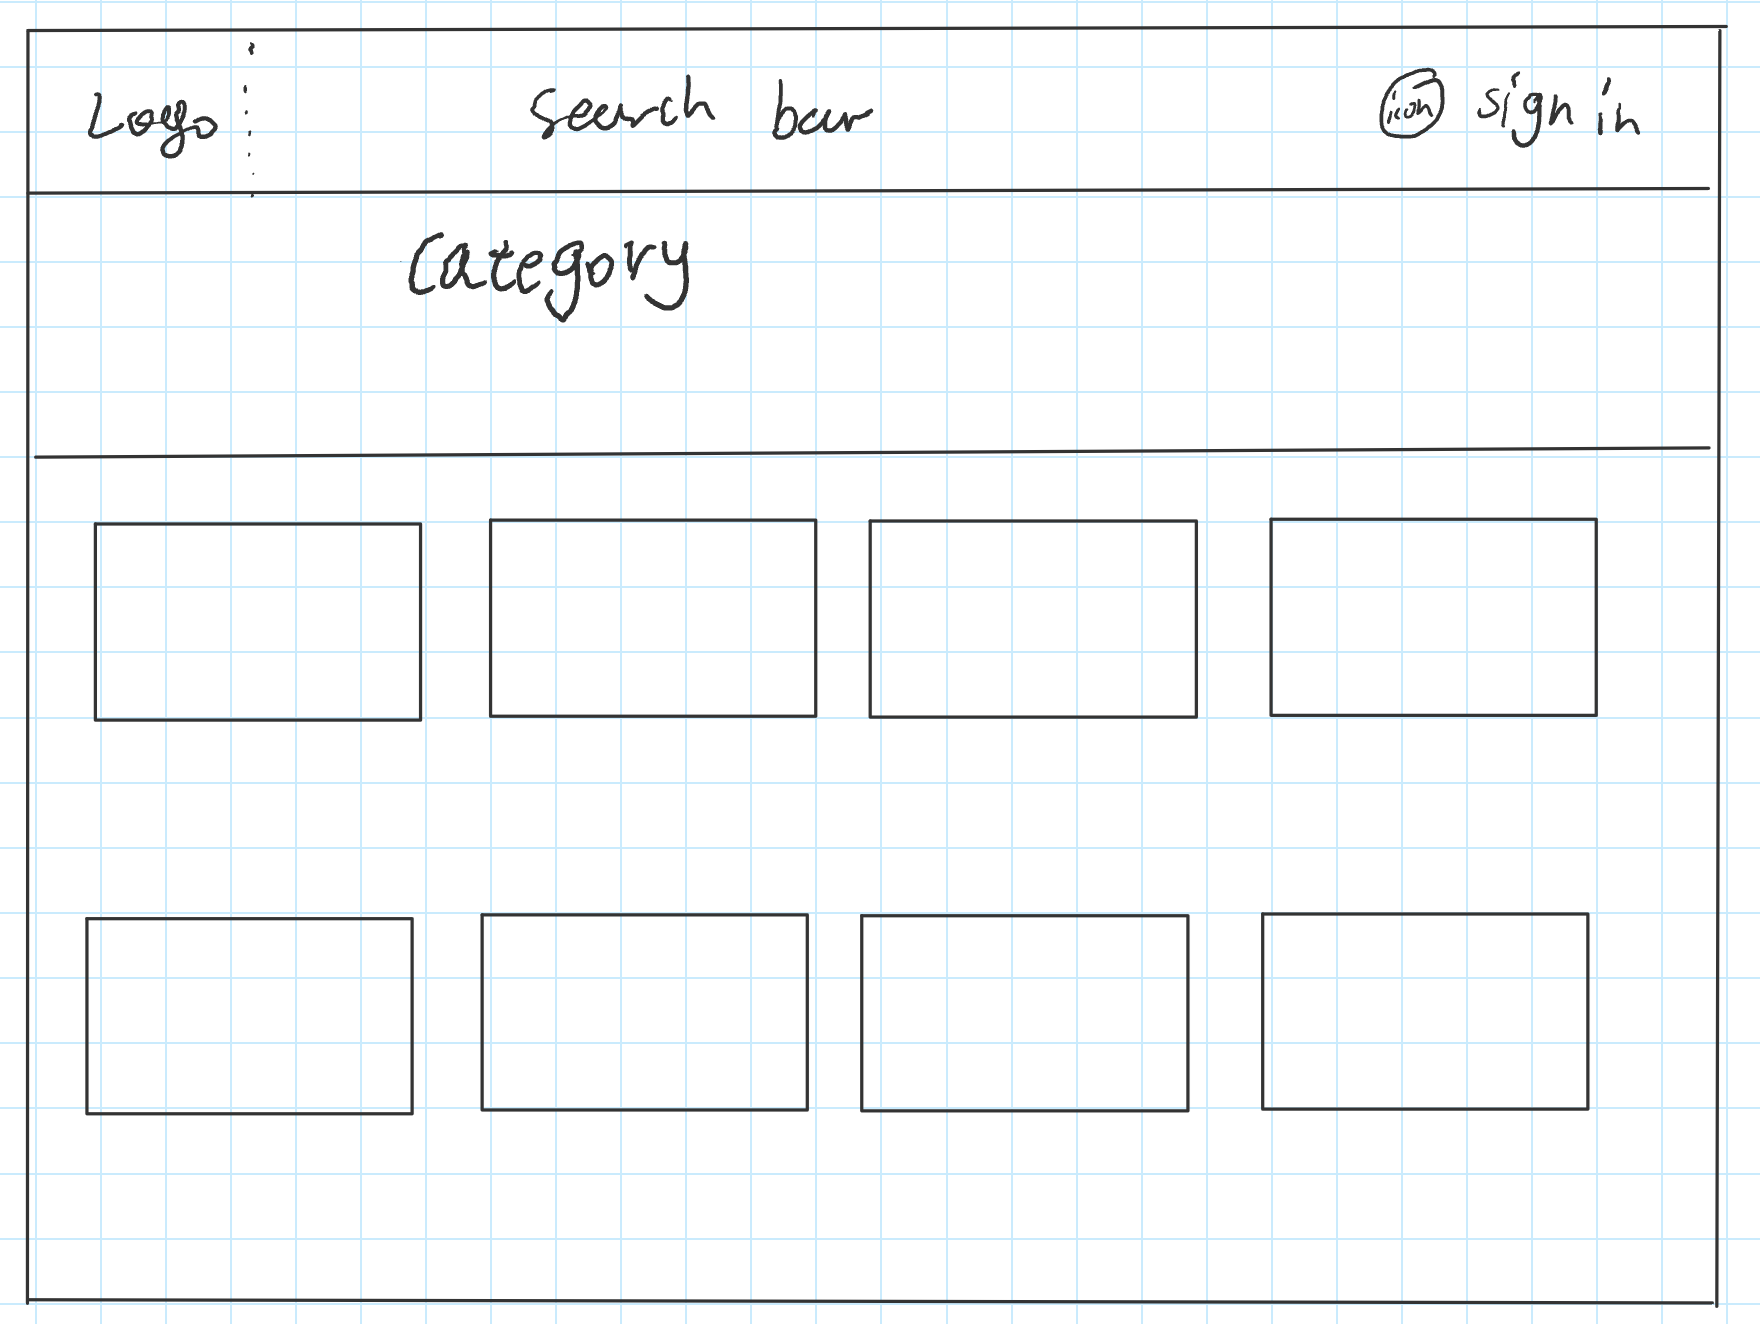 Logo
Search bar
icon
sign in
Category